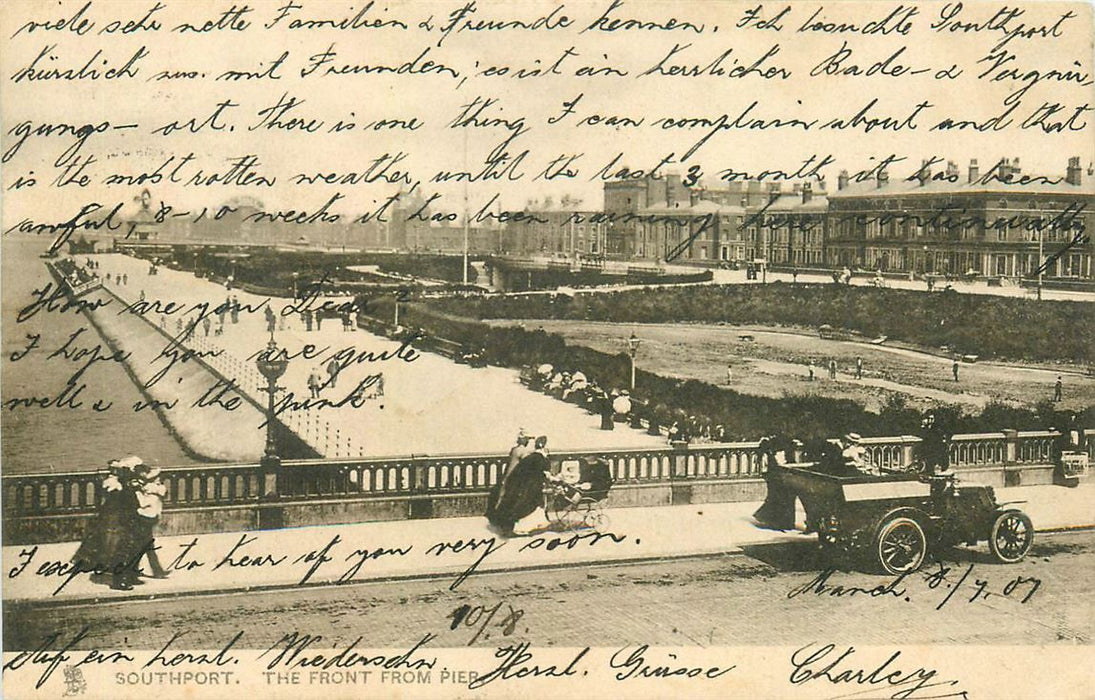 viele sehr nette Familien & Freunde kennen. Ich besuchte Southport
kürzlich mit Freunden, es ist ein herrlicher Bade- & Vergnü-
gungs- ort. There is one thing I can complain about and that
is the most rotten weather, until the last 3 month it has been
awful, 8-10 weeks it has been raining here continually
How are you Dear
I hope you are quite
well & in the pink.
I expect to hear of you very soon.
March. 8/7, 07
10/8.
Auf ein herzl. Wiedersehn. Herzl. Grüsse Charley.
SOUTHPORT. THE FRONT FROM PIER